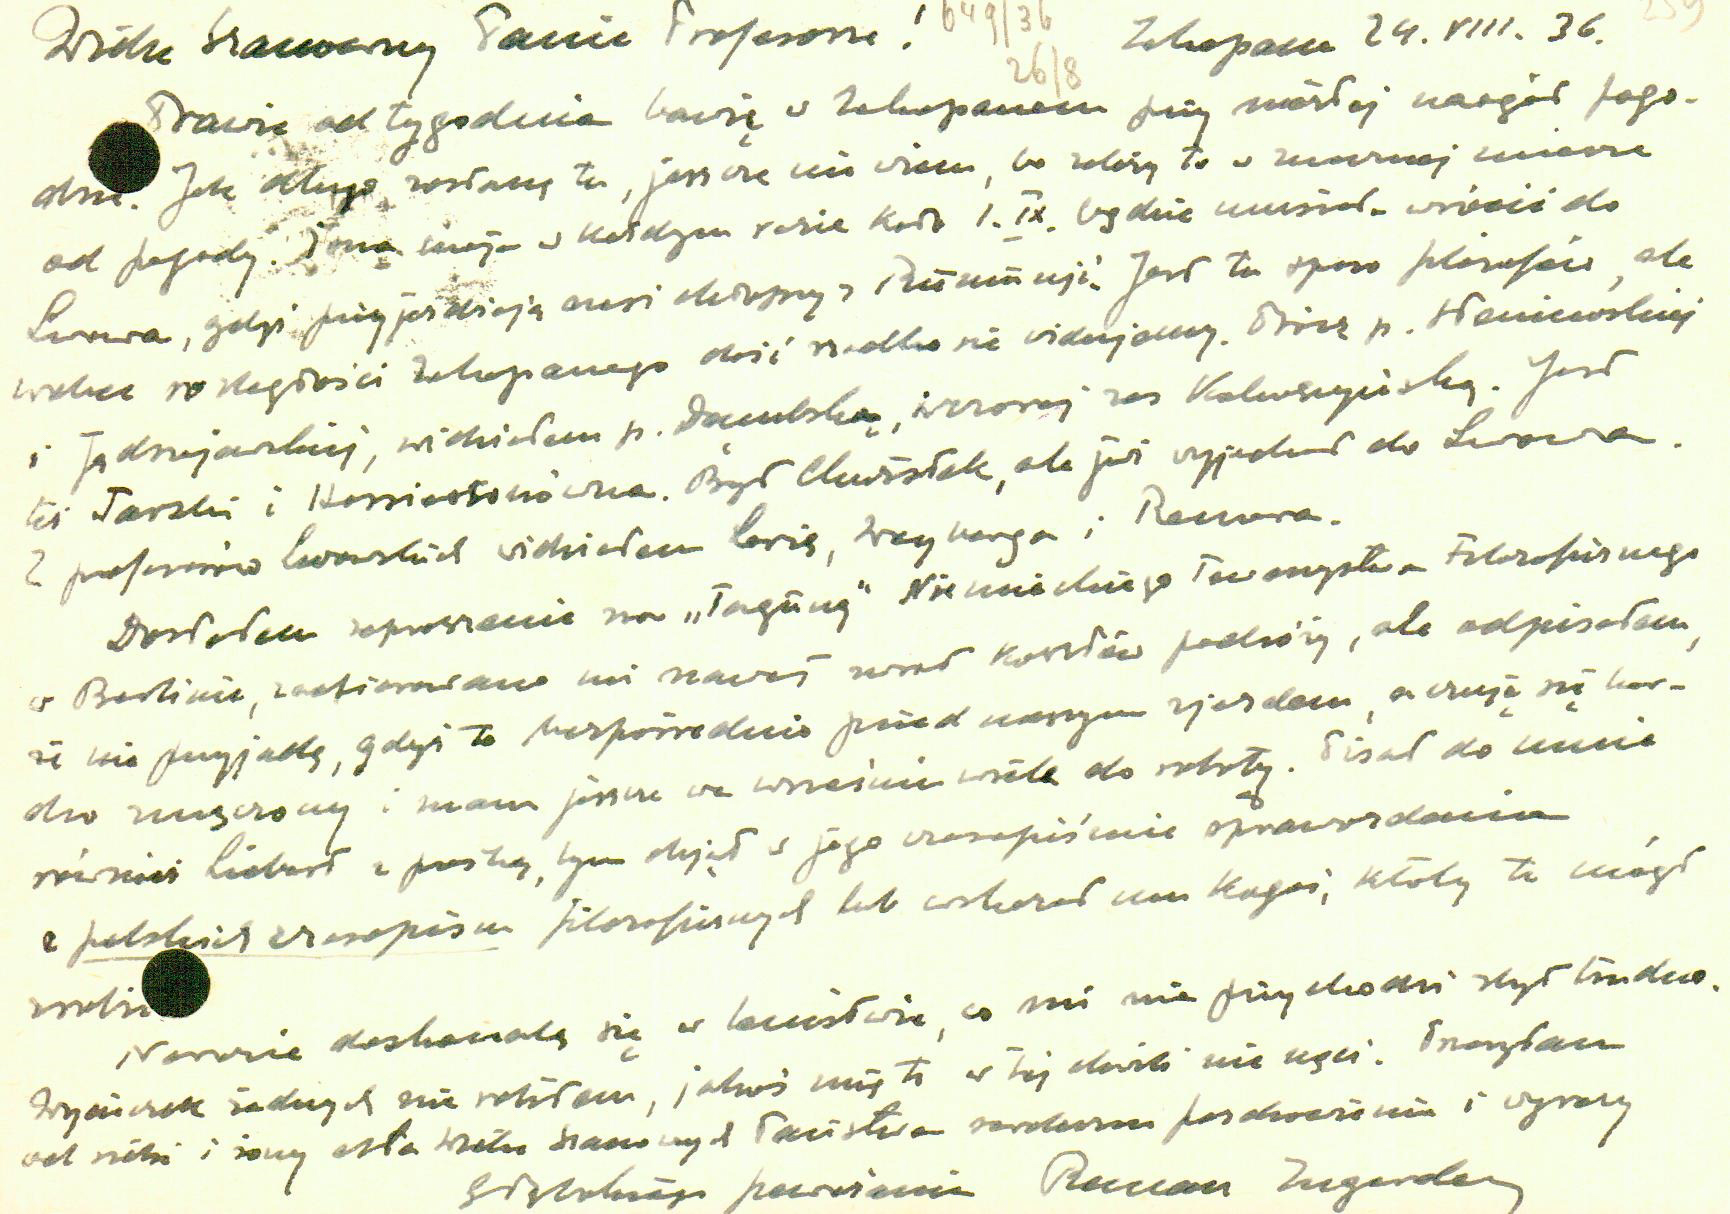 Wielce Szanowny Panie Profesorze! 649/36 Zakopane 24. VIII. 36. 259
26/8
Prawie od tygodnia bawię w Zakopanem przy niezłej naogół pogo-
dzie. Jak długo zostanę tu, jeszcze nie wiem, bo zależy to w znacznej mierze
od pogody. Żona moja w każdym razie koło 1. IX. będzie musiała wrócić do
Lwowa, gdyż przyjeżdżają nasi chłopcy z Rumunji. Jest tu sporo filozofów, ale
wobec rozległości Zakopanego dość rzadko się widujemy. Prócz p. Słoniewskiej
i Jędrzejewskiej, widziałem p. Dąmbską, wczoraj zaś Kokoszyńską. Jest
też Tarski i Hossiassonówna. Był Chwistek, ale już wyjechał do Lwowa.
Z profesorów lwowskich widziałem Lorię, Weyberga i Romera.
Dostałem zaproszenie na „Tagung" Niemieckiego Towarzystwa Filozoficznego
w Berlinie, zaofiarowano mi nawet zwrot kosztów podróży, ale odpisałem,
że nie przyjadę, gdyż to bezpośrednio przed naszym zjazdem, a czuję się bar-
dzo zmęczony i mam jeszcze we wrześniu wiele do roboty. Pisał do mnie
również Liebert z prośbą, bym objął w jego czasopiśmie sprawozdania
z polskich czasopism filozoficznych lub wskazał mu kogoś, któryby to mógł
zrobić
Narazie doskonalę się w lenistwie, co mi nie przychodzi zbyt trudno.
Wycieczek żadnych nie robiłem, jakoś mię to w tej chwili nie nęci. Przesyłam
od siebie i żony dla Wielce Szanownych Państwa serdeczne pozdrowienia i wyrazy
głębokiego poważania Roman Ingarden